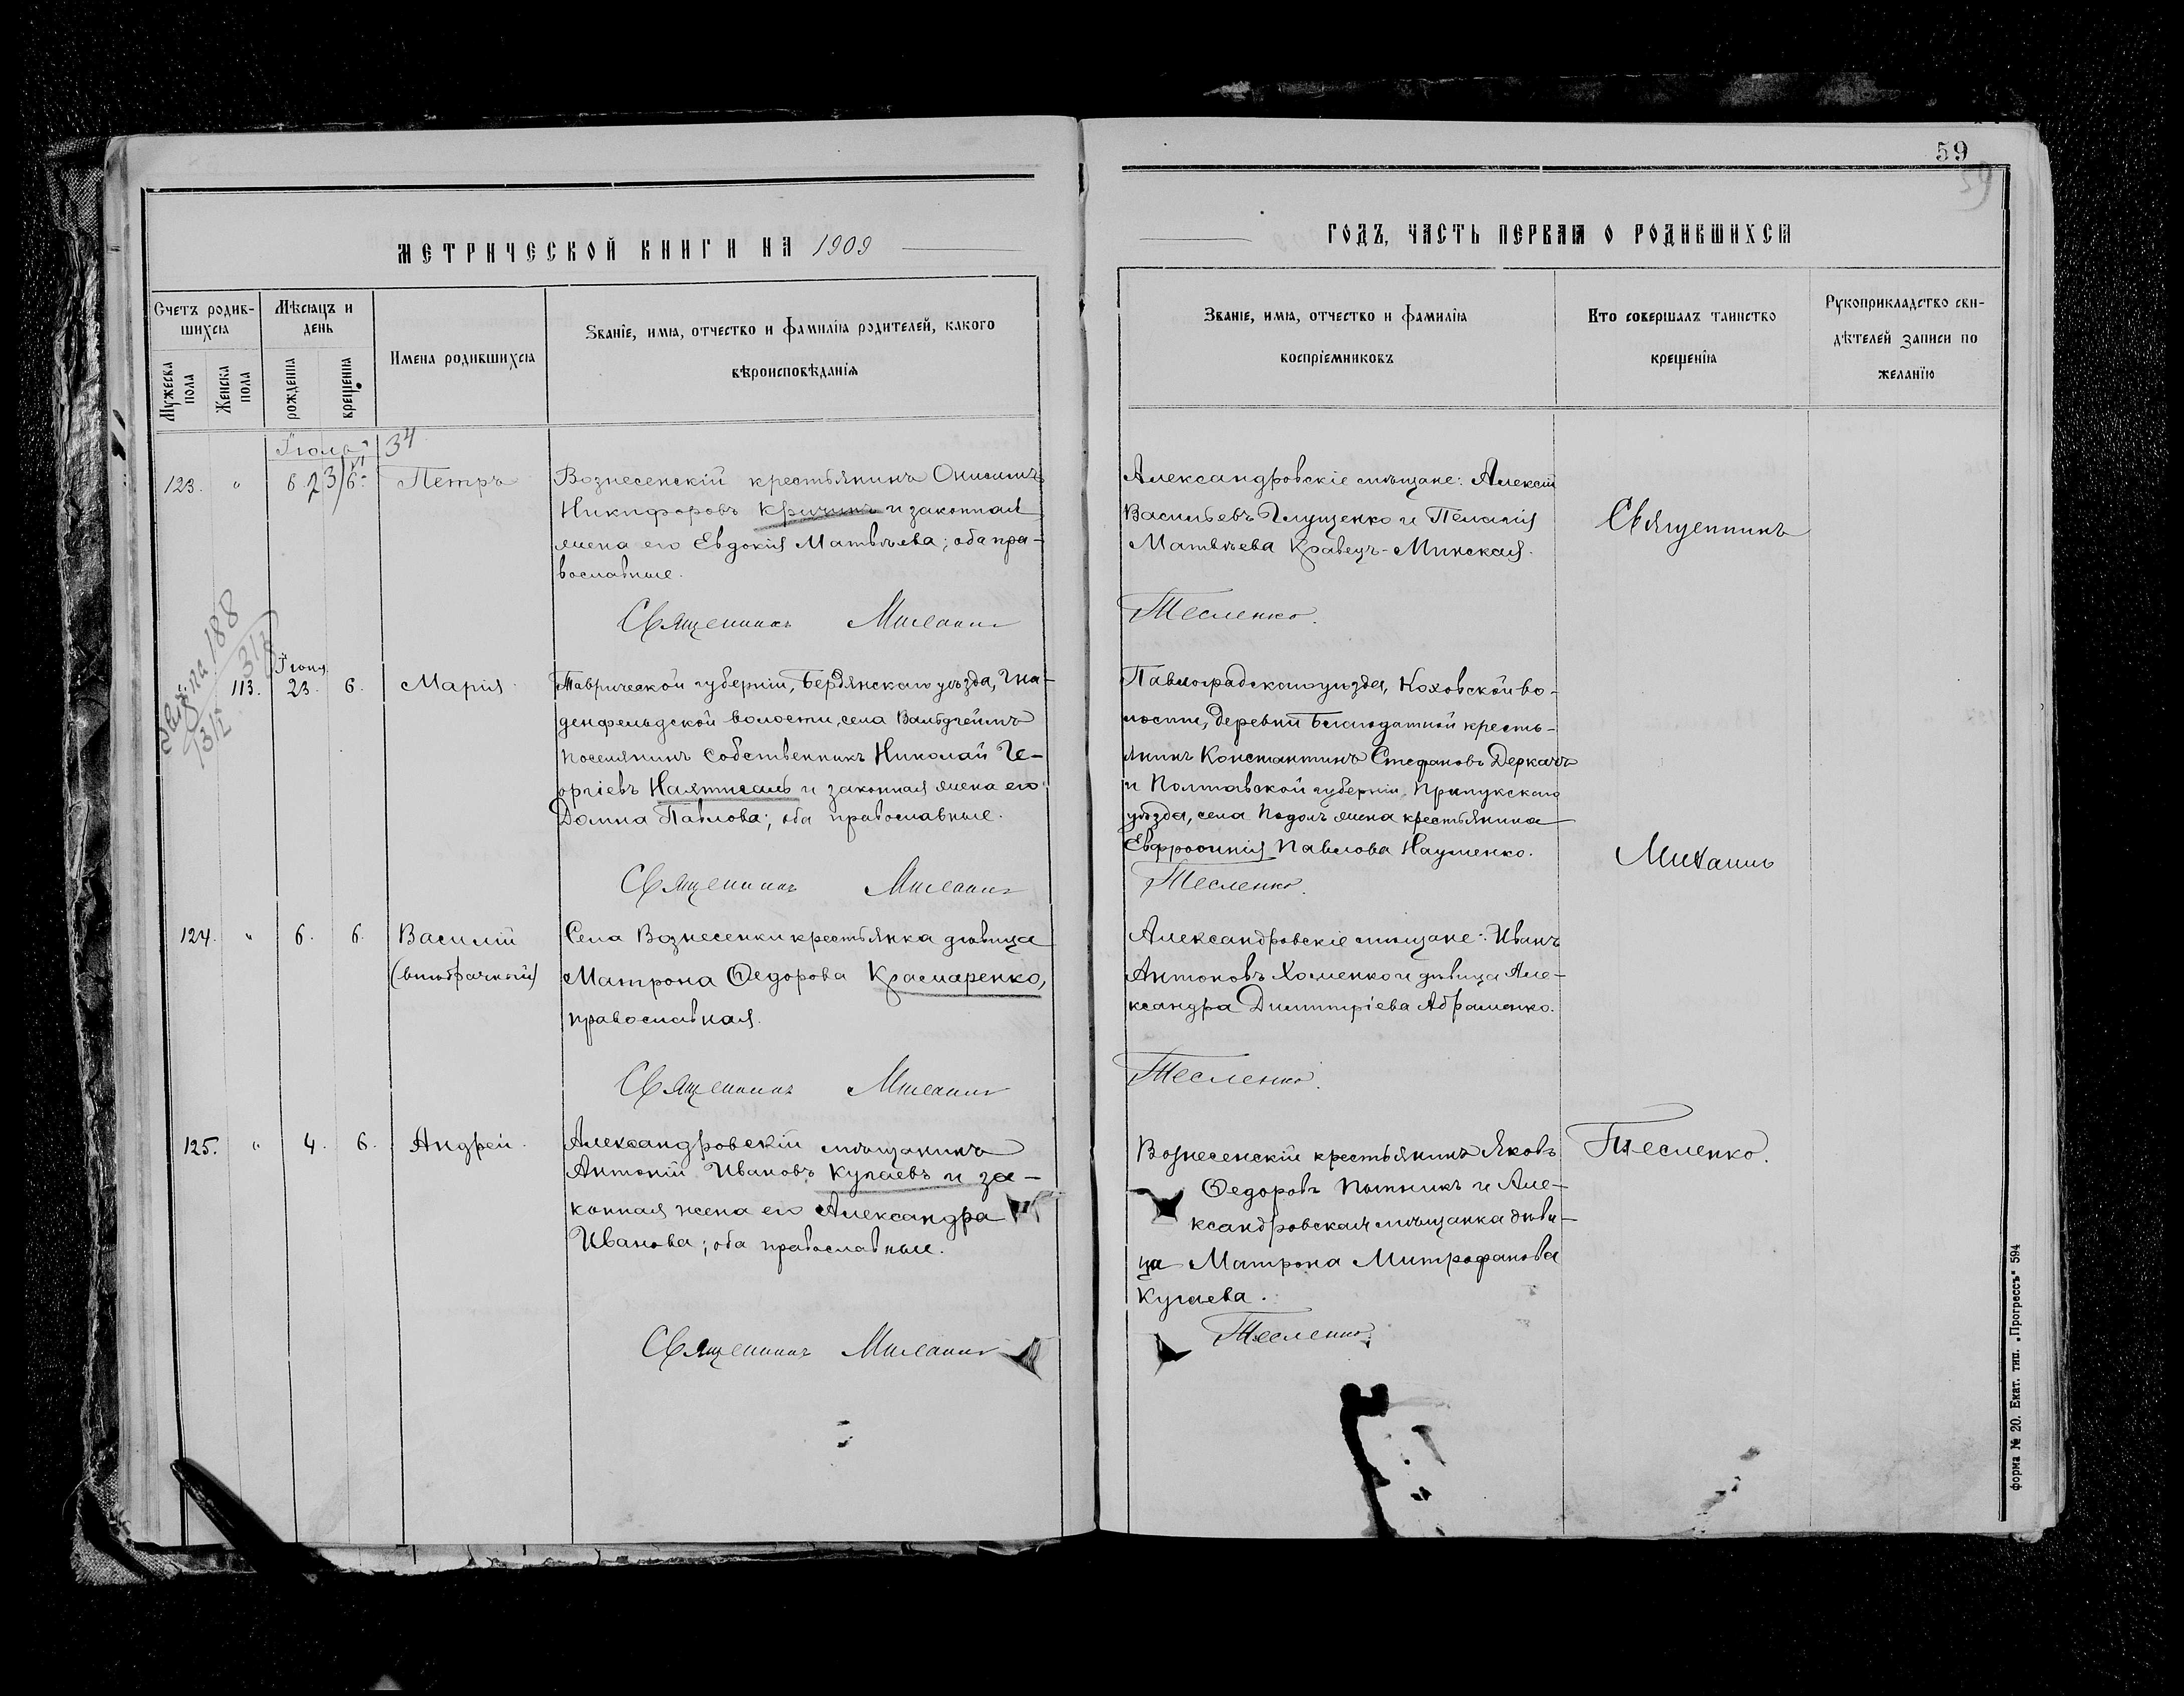 59
59
МЕТРИЧЕСКОЙ КНИГИ НА 1909
ГОДЪ, ЧАСТЬ ПЕРВАЯ О РОДИВШИХСЯ
Счетъ родившихся
Мужеска пола
Женска пола
Мѣсяцъ и день
рожденія
крещенія
Имена родившихся
Званіе, имя, отчество и фамилія родителей, какого
вѣроисповѣданія
Званіе, имя, отчество и фамилія
воспріемниковъ
Кто совершалъ таинство
крещенія
Рукоприкладство сви-
дѣтелей записи по
желанію
Іюль
34
123. " 6. 23/VI 6. Петръ
Вознесенскій крестьянинъ Онисимъ
Никифоровъ Кричинъ и законная
жена его Евдокія Матвѣева; оба пра-
вославные.
Священникъ Михаилъ
Александровскіе мѣщане: Алексій
Васильевъ Глущенко и Пелагія
Матвѣева Кравецъ-Минская.
Тесленко.
Священникъ
188
31/
13/I
Іюня
113. 23. 6. Марія
Таврической губерніи, Бердянскаго уѣзда, Гна-
денфельдской волости, села Вальдгеймъ
поселянинъ собственникъ Николай Ге-
оргіевъ и законная жена его
Домна Павлова; оба православные.
Священникъ Михаилъ
Павлоградскаго уѣзда, Коховской во-
лости, деревни Благодатной кресть-
янинъ Константинъ Стефановъ Деркачъ
и Полтавской губерніи Прилукскаго
уѣзда, села Подолъ жена крестьянина
Евфросинія Павлова Науменко.
Тесленко.
Михаилъ
124. " 6. 6. Василій
(внѣбрачный)
Села Вознесенки крестьянка дѣвица
Матрона Ѳедорова Крамаренко,
православная.
Священникъ Михаилъ
Александровскіе мѣщане: Иванъ
Антоновъ Хоменко и дѣвица Але-
ксандра Димитріева Абраменко.
Тесленко.
125. " 4. 6. Андрей.
Александровскій мѣщанинъ
Антоній Ивановъ Кугаевъ и за-
конная жена его Александра
Иванова; оба православные.
Священникъ Михаилъ
Вознесенскій крестьянинъ Яковъ
Ѳедоровъ и Але-
ксандровская мѣщанка дѣви-
ца Матрона Митрофанова
Кугаева.
Тесленко.
Тесленко.
Форма № 20. Екат. тип. „Прогрессъ" 594